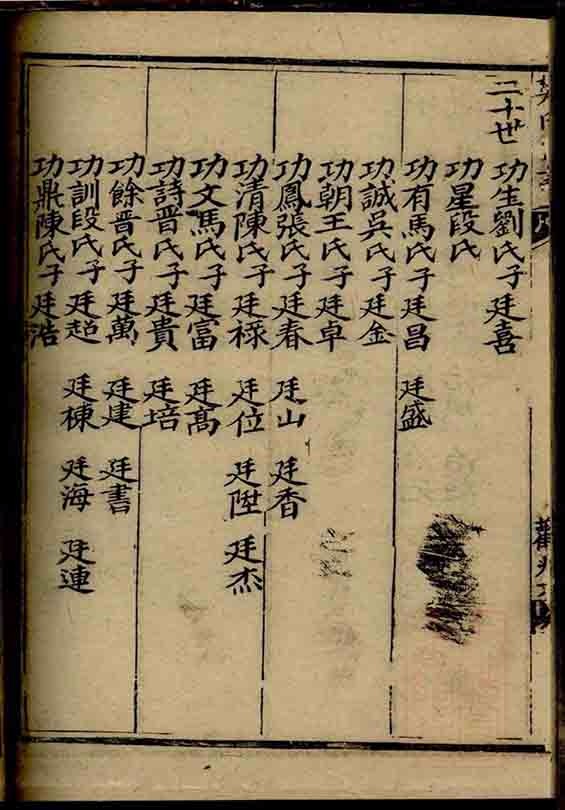 二十世
功生劉氏子廷喜
功星段氏
功有馬氏子廷昌 廷盛
功誠吳氏子廷金
功朝王氏子廷卓
功鳳張氏子廷春 廷山 廷香
功清陳氏子廷祿 廷位 廷陞 廷杰
功文馬氏子廷富 廷高
功詩晋氏子廷貴 廷培
功餘晋氏子廷萬 廷建 廷書
功訓段氏子廷超 廷棟 廷海 廷連
功鼎陳氏子廷浩